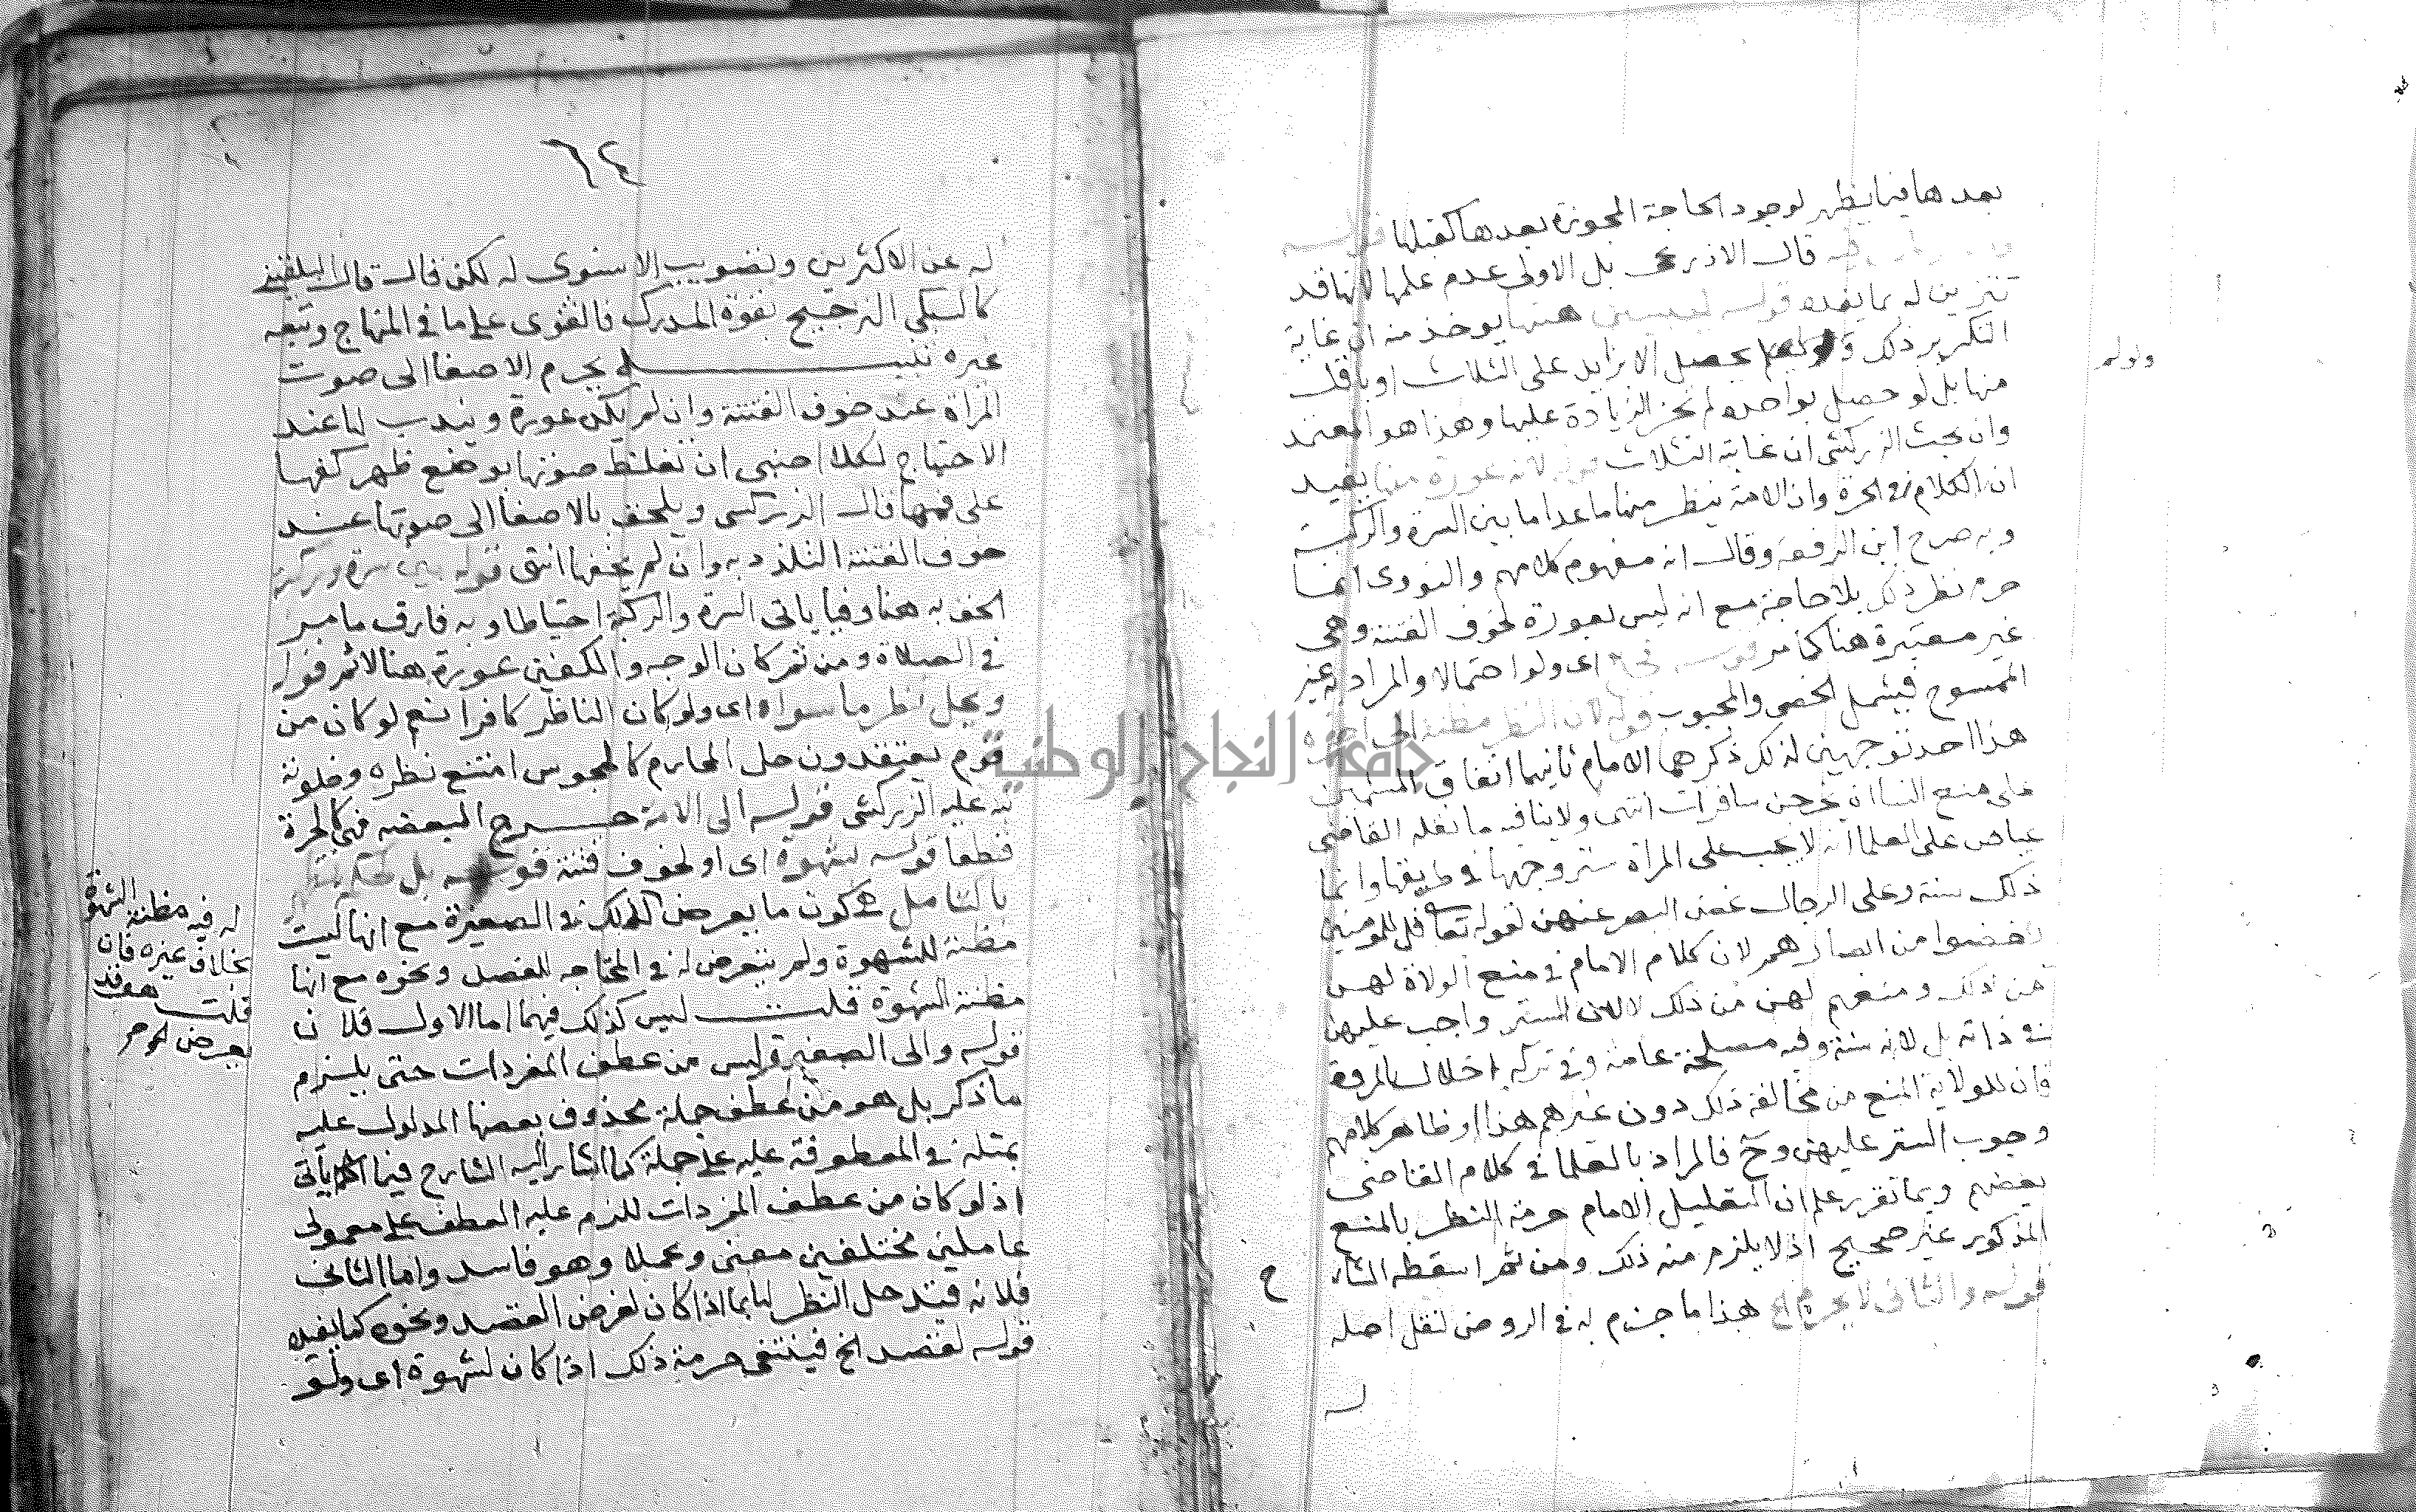 بعدها فيما يظهر لوجود الحاجة المجوزة بعدها كقبلها قوله
قال الاذرعي بل الاولى عدم علمها لانها قد
تتزين له بما يغده قوله ليتبين هيئتها يوخذ منه ان غاية
التكرير ذلك ولم يحصل الا بزايد على الثلاث او باقل
منها بل لو حصل بواحده لم تجز الزيادة عليها وهذا هو المعتمد
وان بحث الزركشي ان غايته الثلاث قوله لانه عورة منها يفيد
ان الكلام في الحرة وان الامة ينظر منها ما عدا ما بين السرة والركبة
وبه صرح ابن الرفعة وقال انه مفهوم كلامهم والنووي انما
حرم نظر ذلك بلا حاجة مع انه ليس بعورة لخوف الفتنة وهي
غير معتبرة هنا كما مر قوله فحل اى ولو احتمالا والمراد به غير
الممسوح فيشمل الخصي والمجبوب قوله لان النظر مظنة الى اخره
هذا احد توجيهين لذلك ذكرهما الامام ثانيهما اتفاق المسلمين
على منع النسا ان يخرجن سافرات انتهى ولا ينافيه ما نقله القاضي
عياض على العلما انه لا يجب على المراة ستر وجهها في طريقها وانما
ذلك سنة وعلى الرجال غض البصر عنهن لقوله تعا قل للمومنين
يغضوا من ابصارهم لان كلام الامام في منع الولاة لهن
من ذلك ومنعهم لهن من ذلك لا لان الستر واجب عليهن
في ذاته بل لانه سنة وفيه مصلحة عامة وفي تركه اخلال بالمروة
فان للولاية المنع من مخالفة ذلك دون غيرهم هذا وظاهر كلامهم
وجوب الستر عليهن وح فالمراد بالعلما في كلام القاضي
بعضهم وبما تقرر علم ان التعليل الامام حرمة النظر بالمنع
المذكور غير صحيح اذ لا يلزم منه ذلك ومن ثم اسقطه الشا
قوله والثاني لا يحرم الخ هذا ما جزم به في الروض لنقل اصله
له
ولو لم
ح
٦٤
له عن الاكثرين وتصويب الاسنوى له لكن قال قال البلقيني
كالسبكي الترجيح بقوة المدرك فالفتوى على ما في المنهاج وتبعه
غيره تنبيه يحرم الاصغا الى صوت
المراة عند خوف الفتنة وان لم يكن عورة ويندب لها عند
الاحتياج لكلام اجنبي ان تغلظ صوتها بوضع ظهر كفها
على فمها قال الزركشي ويلحق بالاصغا الى صوتها عند
خوف الفتنة التلذذ به وان لم يخفها انتهى قوله بين سرة وركبة
الحق به هنا وفيما ياتى السرة والركبة احتياطا وبه فارق ما مر
في الصلاة ومن ثم كان الوجه والكفين عورة هنا لا ثم قوله
ويحل نظر ما سواه اى ولو كان الناظر كافرا نعم لو كان من
قوم يعتقدون حل المحارم كالمجوس امتنع نظره وخلوته
نبه عليه الزركشى قوله الى الامة خرج المبعضه فهي كالحرة
قطعا قوله بشهوة اى او لخوف فتنة قوله بل
بالتامل في كون ما يعرض لذلك في الصغيرة مع انها ليست
مظنة للشهوة ولم يتعرض له في المحتاجه للفصد ونحوه مع انها
مظنة الشهوة قلت ليس كذلك فيهما اما الاول فلان
قوله والى الصغيرة ليس من عطف المفردات حتى يلزم
ما ذكر بل هو من عطف جملة محذوف بعضها المدلول عليه
بمثله في المعطوفة عليه على جملة كما اشار اليه الشارح فيما ياتى
اذ لو كان من عطف المفردات للزم عليه العطف على معمولى
عاملين مختلفين معنى وعملا وهو فاسد واما الثانى
فلانه قيد حل النظر لها بما اذا كان لغرض الفصد ونحوه كما يفيده
قوله لفصد الخ فينتفى حرمة ذلك اذا كان لشهوة اى ولو
له فيه مظنة الشهوة
بخلاف غيره فان
قلت هو قد
يعرض
جامعة النجاح الوطنية